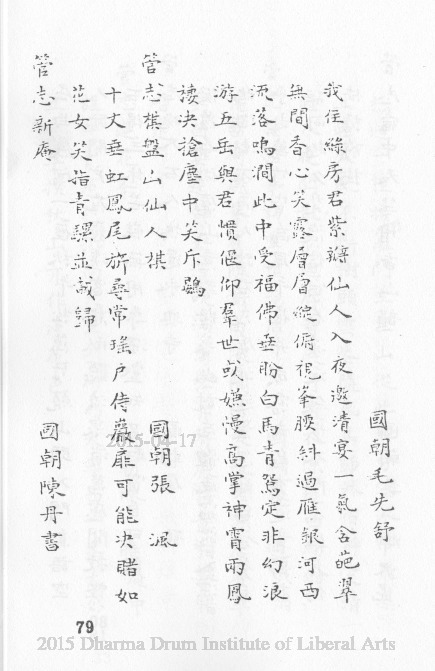 國朝毛先舒
我住綠房君紫瓣仙人入夜邀清宴一氣含葩翠
無間香心笑露層層綻俯視峯腰斜過雁銀河西
流落鳴澗此中受福佛垂盼白馬青鴛定非幻浪
游五岳與君慣偃仰羣世或嫌慢高掌神霄兩鳳
棲決搶塵中笑斥鷃
管志棋盤山仙人棋 國朝張 渢
十丈垂虹鳳尾旂尋常瑤户侍嚴扉可能决賭如
花女笑指青騾並載歸
管志新庵 國朝陳丹書
79
2015-04-17
2015 Dharma Drum Institute of Liberal Arts